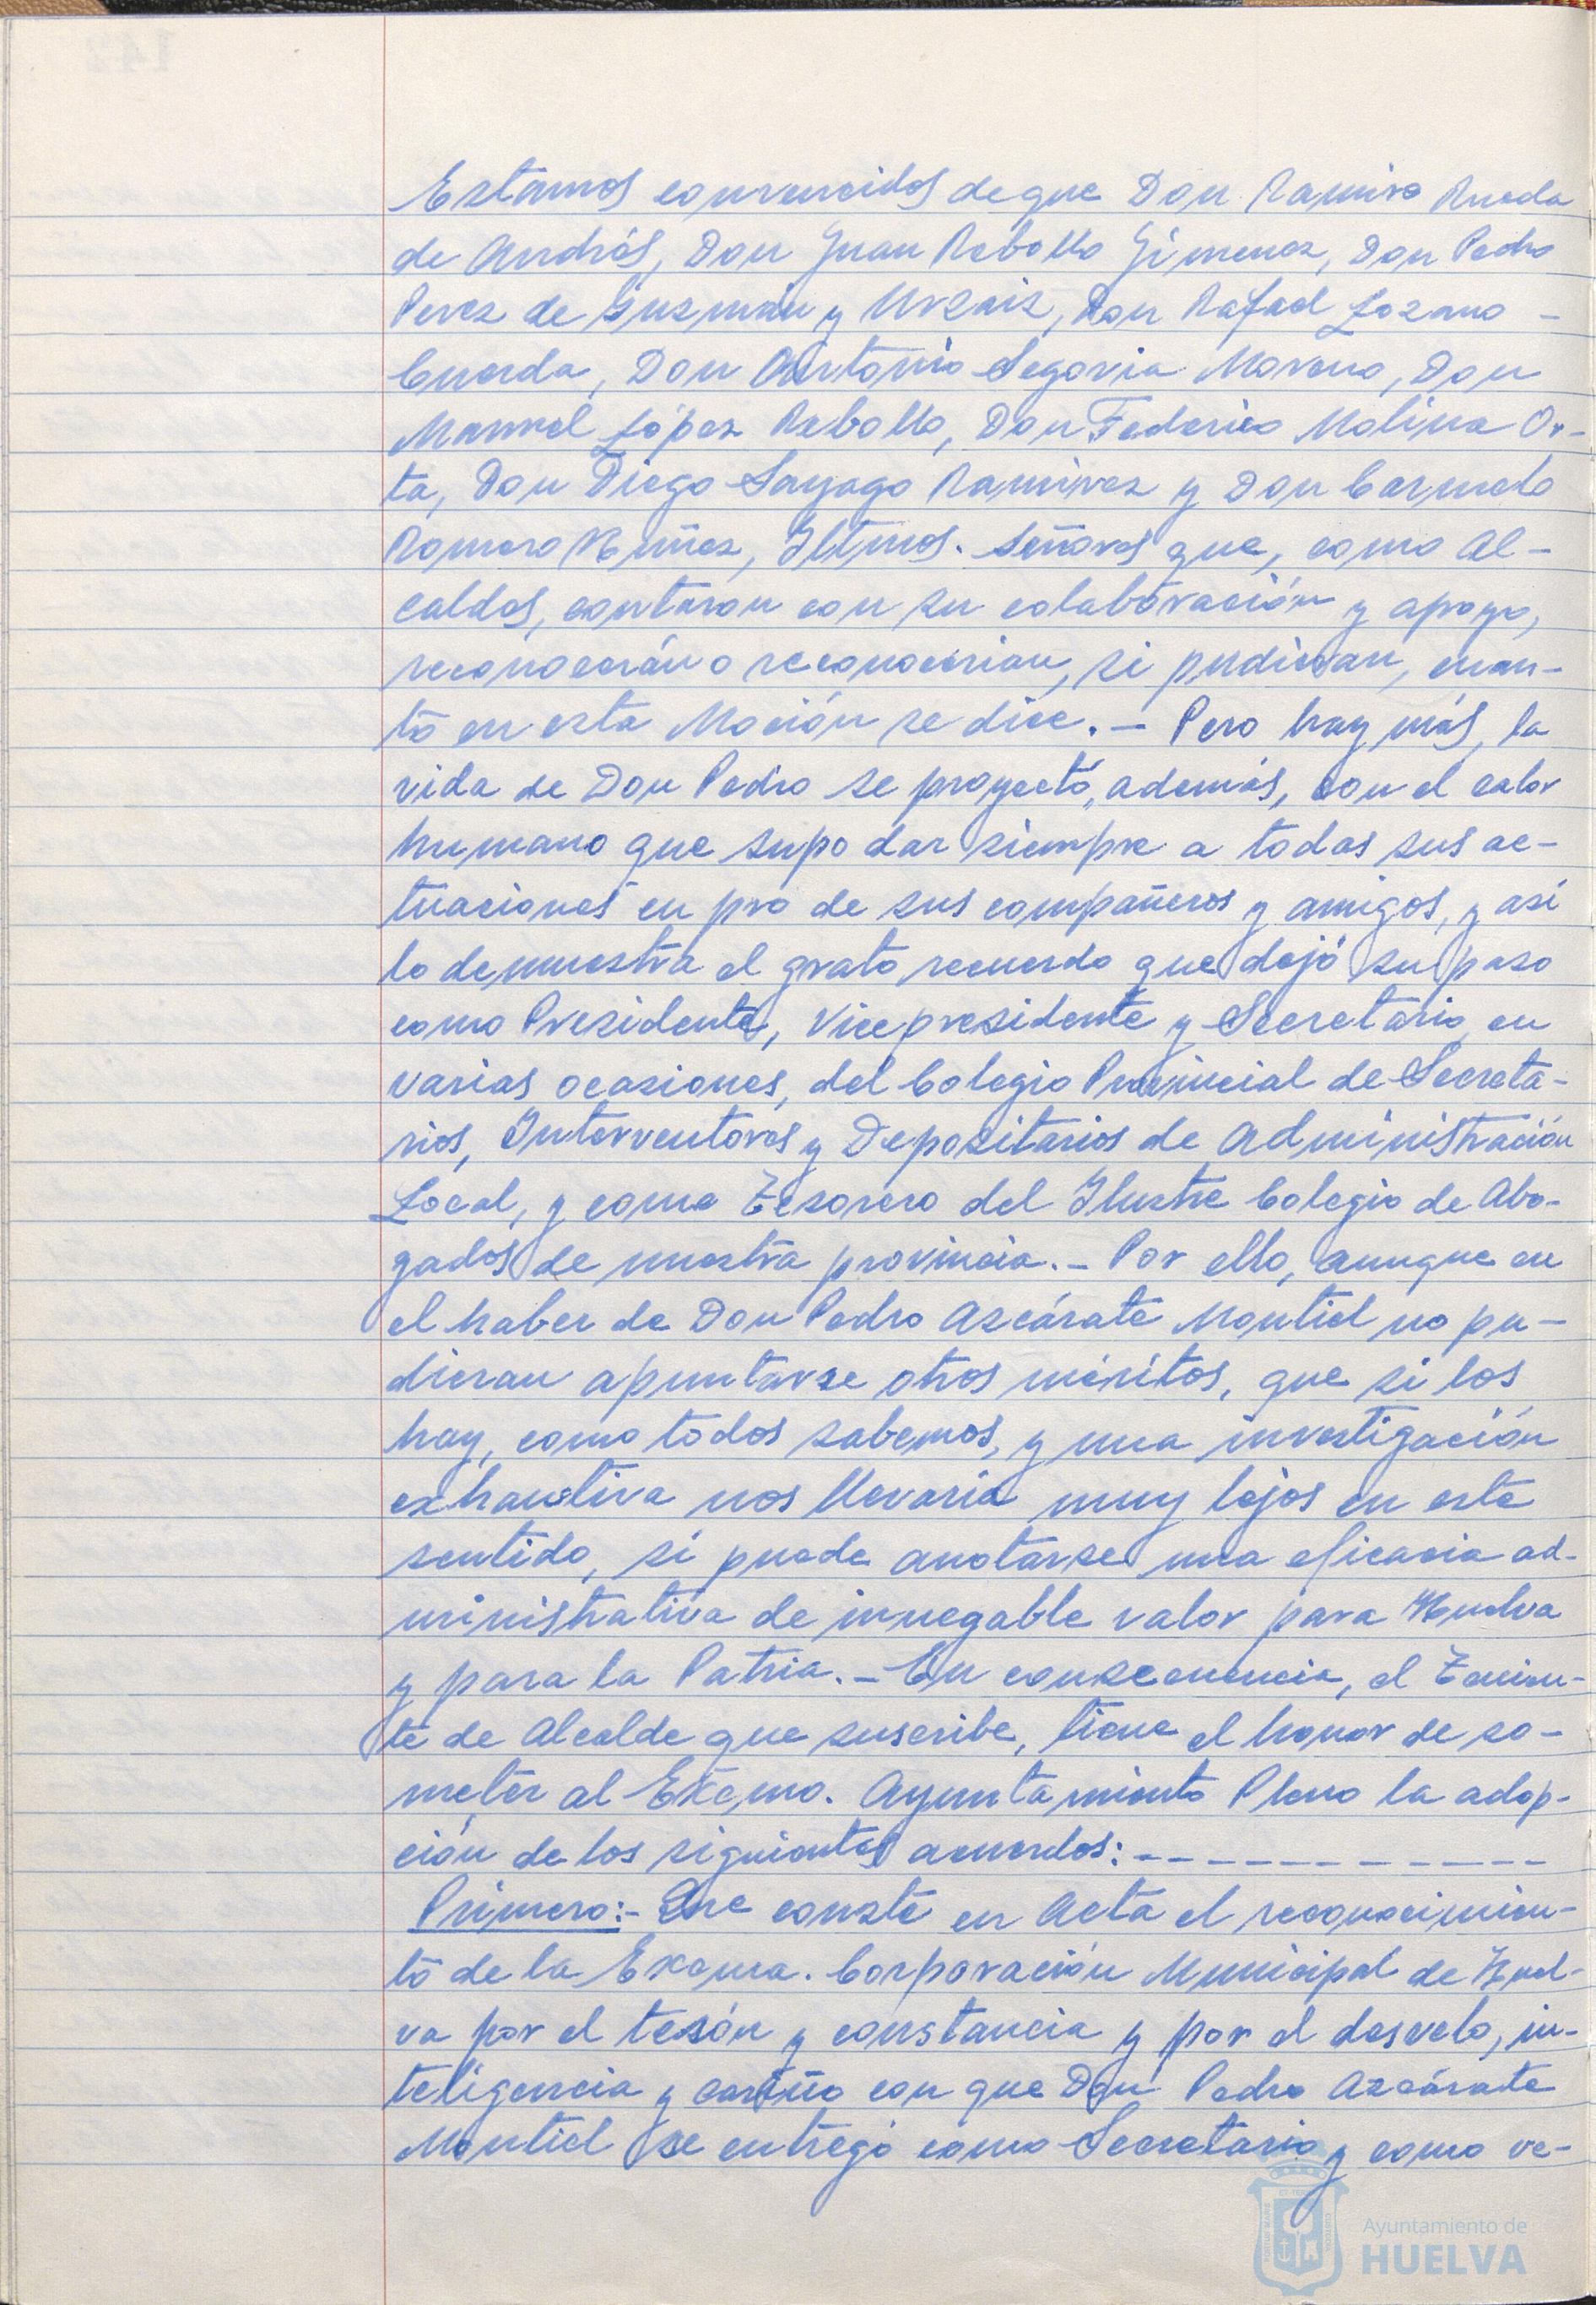 Estamos convencidos de que Don Ramiro Rueda
de Andrés, Don Juan Rebollo Gimenez, Don Pedro
Perez de Guzmán y Urzaiz, Don Rafael Lozano -
Cuerda, Don Antonio Segovia Moreno, Don
Manuel López Rebollo, Don Federico Molina Or-
ta, Don Diego Sayago Ramirez y Don Carmelo
Romero Nuñez, Iltmos. señores que, como Al-
caldes, contaron con su colaboración y apoyo,
reconocerán o reconocerian, si pudieran, cuan-
to en esta Moción se dice.- Pero hay más, la
vida de Don Pedro se proyectó, además, con el calor
humano que supo dar siempre a todas sus ac-
tuaciones en pro de sus compañeros y amigos, y asi
lo demuestra el grato recuerdo que dejó su paso
como Presidente, Vicepresidente y Secretario, en
varias ocasiones, del Colegio Provincial de Secreta-
rios, Interventores y Depositarios de Administración
Local, y como Tesorero del Ilustre Colegio de Abo-
gados de nuestra provincia.- Por ello, aunque en
el haber de Don Pedro Azcárate Montiel no pu-
dieran apuntarse otros méritos, que si los
hay, como todos sabemos, y una investigación
exhaustiva nos llevaria muy lejos en este
sentido, si puede anotarse una eficacia ad-
ministrativa de innegable valor para Huelva
y para la Patria.- En consecuencia, el Tenien-
te de Alcalde que suscribe, tiene el honor de so-
meter al Excmo. Ayuntamiento Pleno la adop-
ción de los siguientes acuerdos:- - - - - - - - - - - -
Primero:- Que conste en Acta el reconocimien-
to de la Excma. Corporación Municipal de Huel-
va por el tesón y constancia y por el desvelo, in-
teligencia y cariño con que Don Pedro Azcárate
Montiel se entregó como Secretario y como ve-
Ayuntamiento de
HUELVA